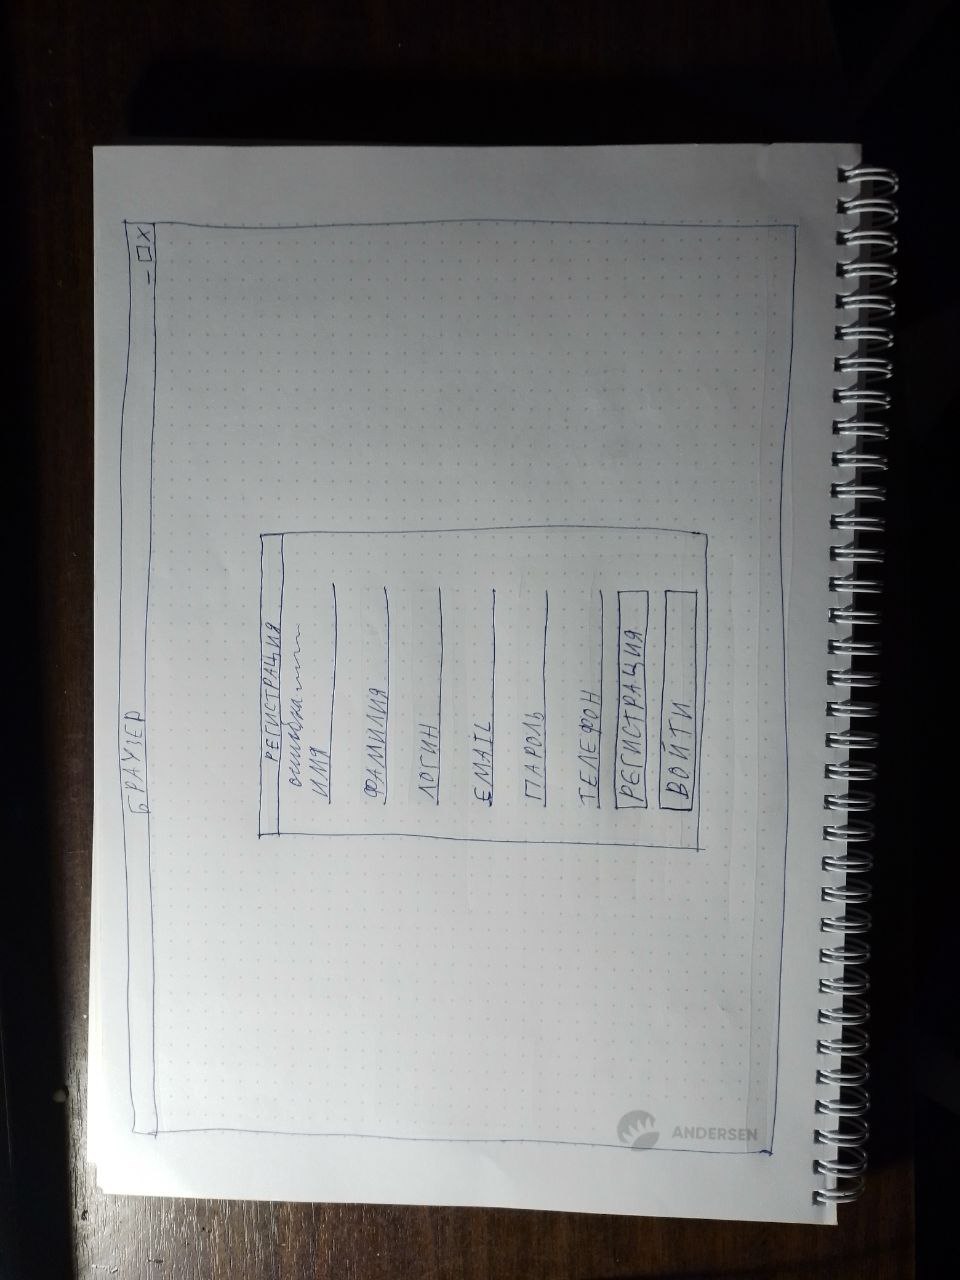 БРАУЗЕР
- □ X
РЕГИСТРАЦИЯ
ошибка
ИМЯ
ФАМИЛИЯ
ЛОГИН
EMAIL
ПАРОЛЬ
ТЕЛЕФОН
РЕГИСТРАЦИЯ
ВОЙТИ
ANDERSEN